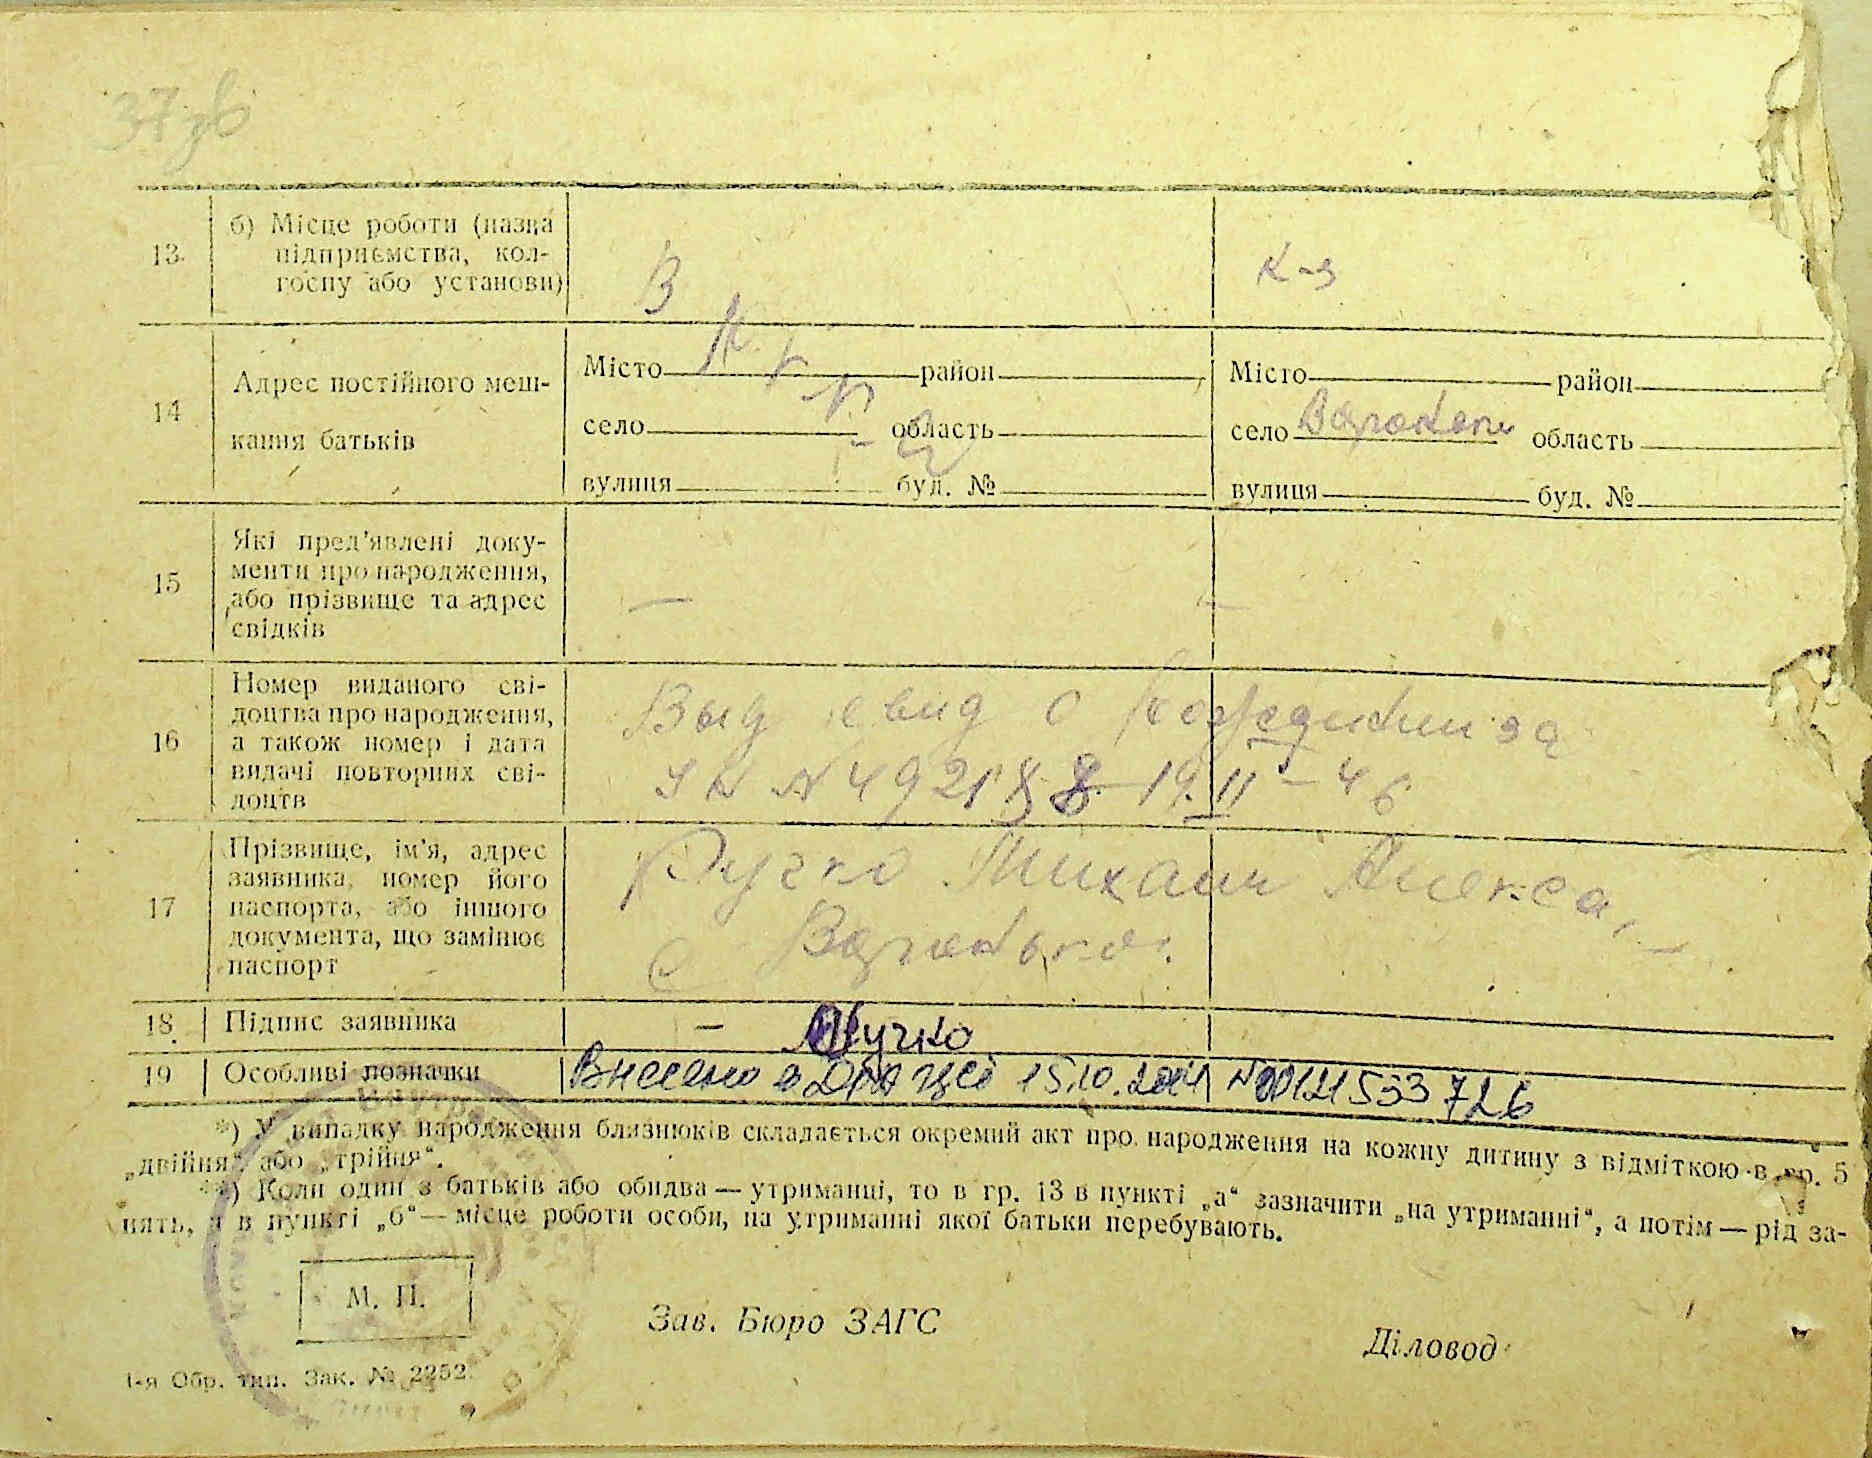 37 зв
13. б) Місце роботи (назва
підприємства, кол-
госпу або установи)
В
к-з
14 Адрес постійного меш-
кання батьків
Місто район
село область
вулиця буд. №
Місто район
село область
вулиця буд. №
15 Які пред'явлені доку-
менти про народження,
або прізвище та адрес
свідків
— —
16 Номер виданого сві-
доцтва про народження,
а також номер і дата
видачі повторних сві-
доцтв
Выд свид о за
19.II-46
17 Прізвище, ім'я, адрес
заявника, номер його
паспорта, або іншого
документа, що замінює
паспорт
Михаил Алекса
с
18. Підпис заявника —
19 Особливі позначки Внесено в ДРАЦС 15.10. N00121533726
*) У випадку народження близнюків складається окремий акт про народження на кожну дитину з відміткою в гр. 5
„двійня“ або „трійня“.
**) Коли один з батьків або обидва — утриманці, то в гр. 13 в пункті „а“ зазначити „на утриманні“, а потім — рід за-
нять, а в пункті „б“ — місце роботи особи, на утриманні якої батьки перебувають.
М. П.
Зав. Бюро ЗАГС
Діловод
1-я Обр. тип. Зак. № 2252.